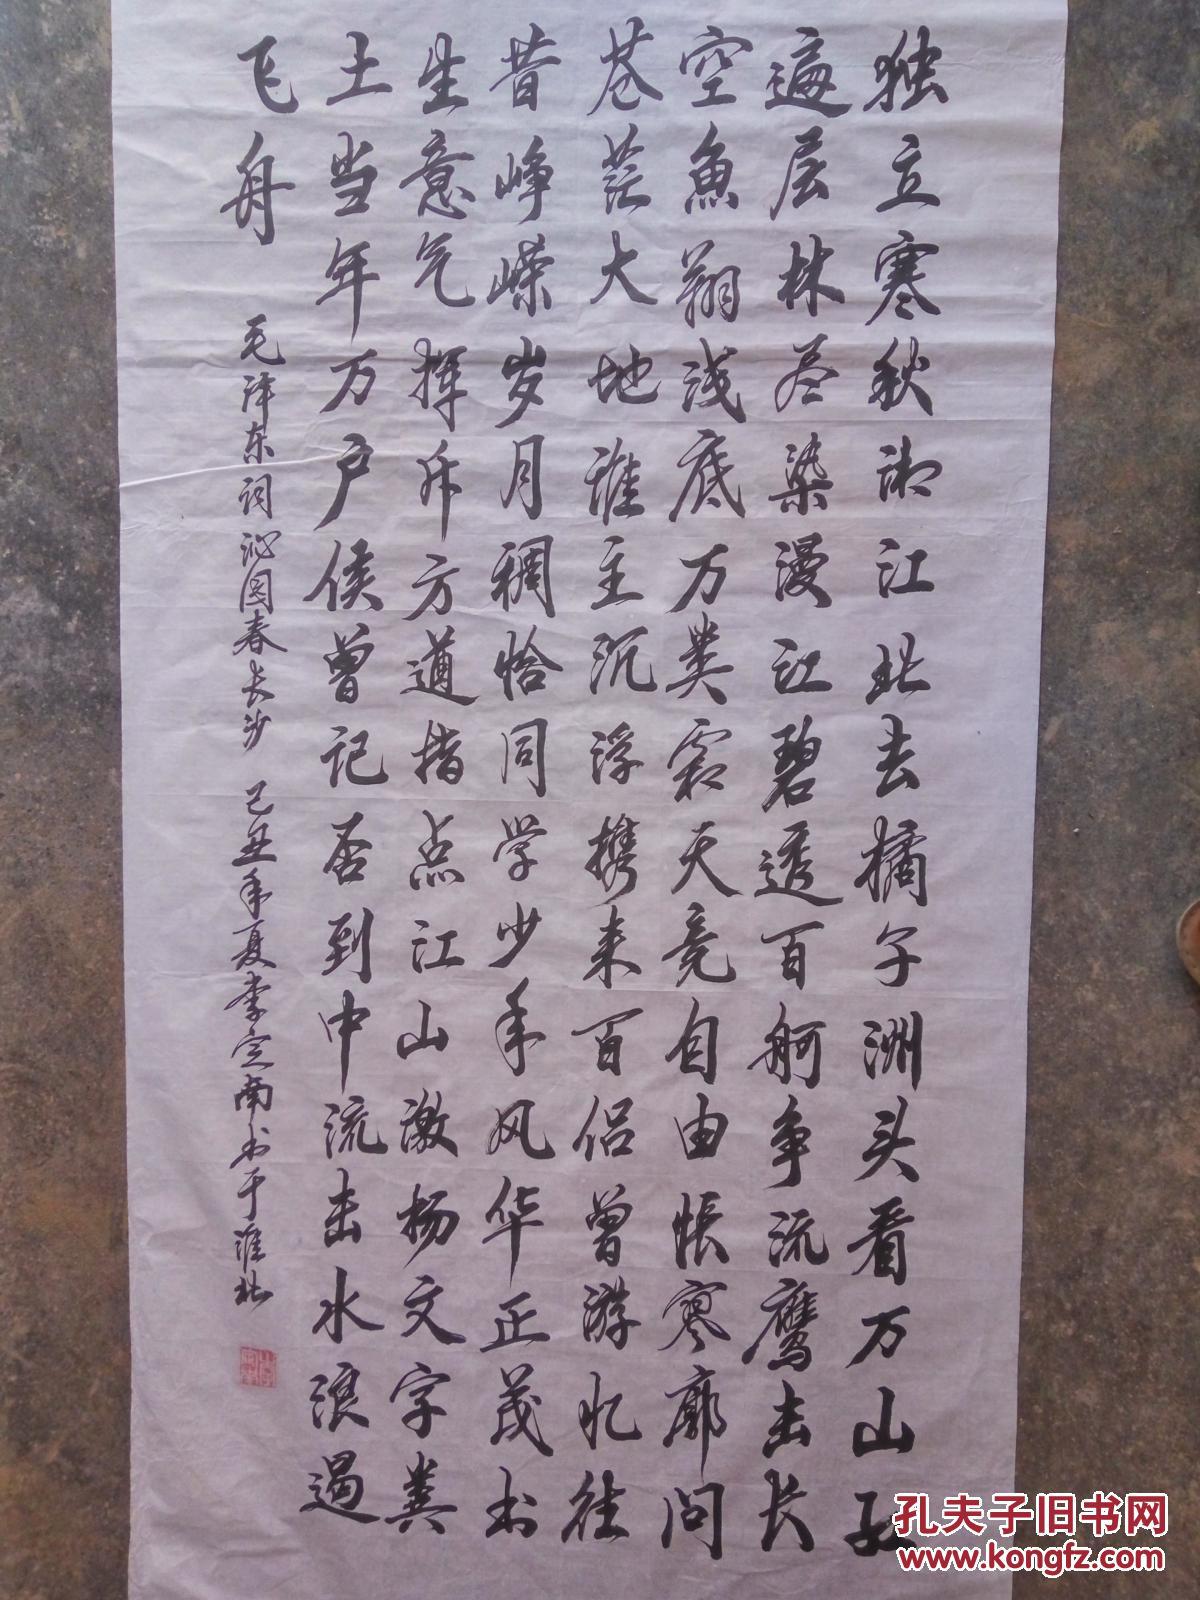 独立寒秋湘江北去橘子洲头看万山红
遍层林尽染漫江碧透百舸争流鹰击长
空魚翔浅底万类霜天竞自由怅寥廓问
苍茫大地谁主沉浮携来百侣曾游忆往
昔峥嵘岁月稠恰同学少年风华正茂书
生意气挥斥方遒指点江山激扬文字粪
土当年万户侯曾记否到中流击水浪遏
飞舟
毛泽东词沁园春长沙 己丑年夏李定南书于淮北
孔夫子旧书网
www.kongfz.com